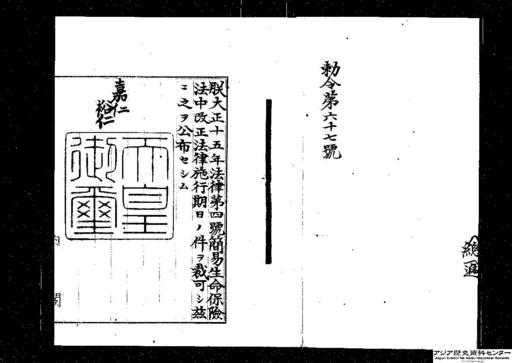 勅令第六十七號
朕大正十五年法律第四號簡易生命保險
法中改正法律施行期日ノ件ヲ裁可シ茲
ニ之ヲ公布セシム
嘉仁
裕仁
天皇
御璽
内閣
アジア歴史資料センター
Japan Center for Asian Historical Records